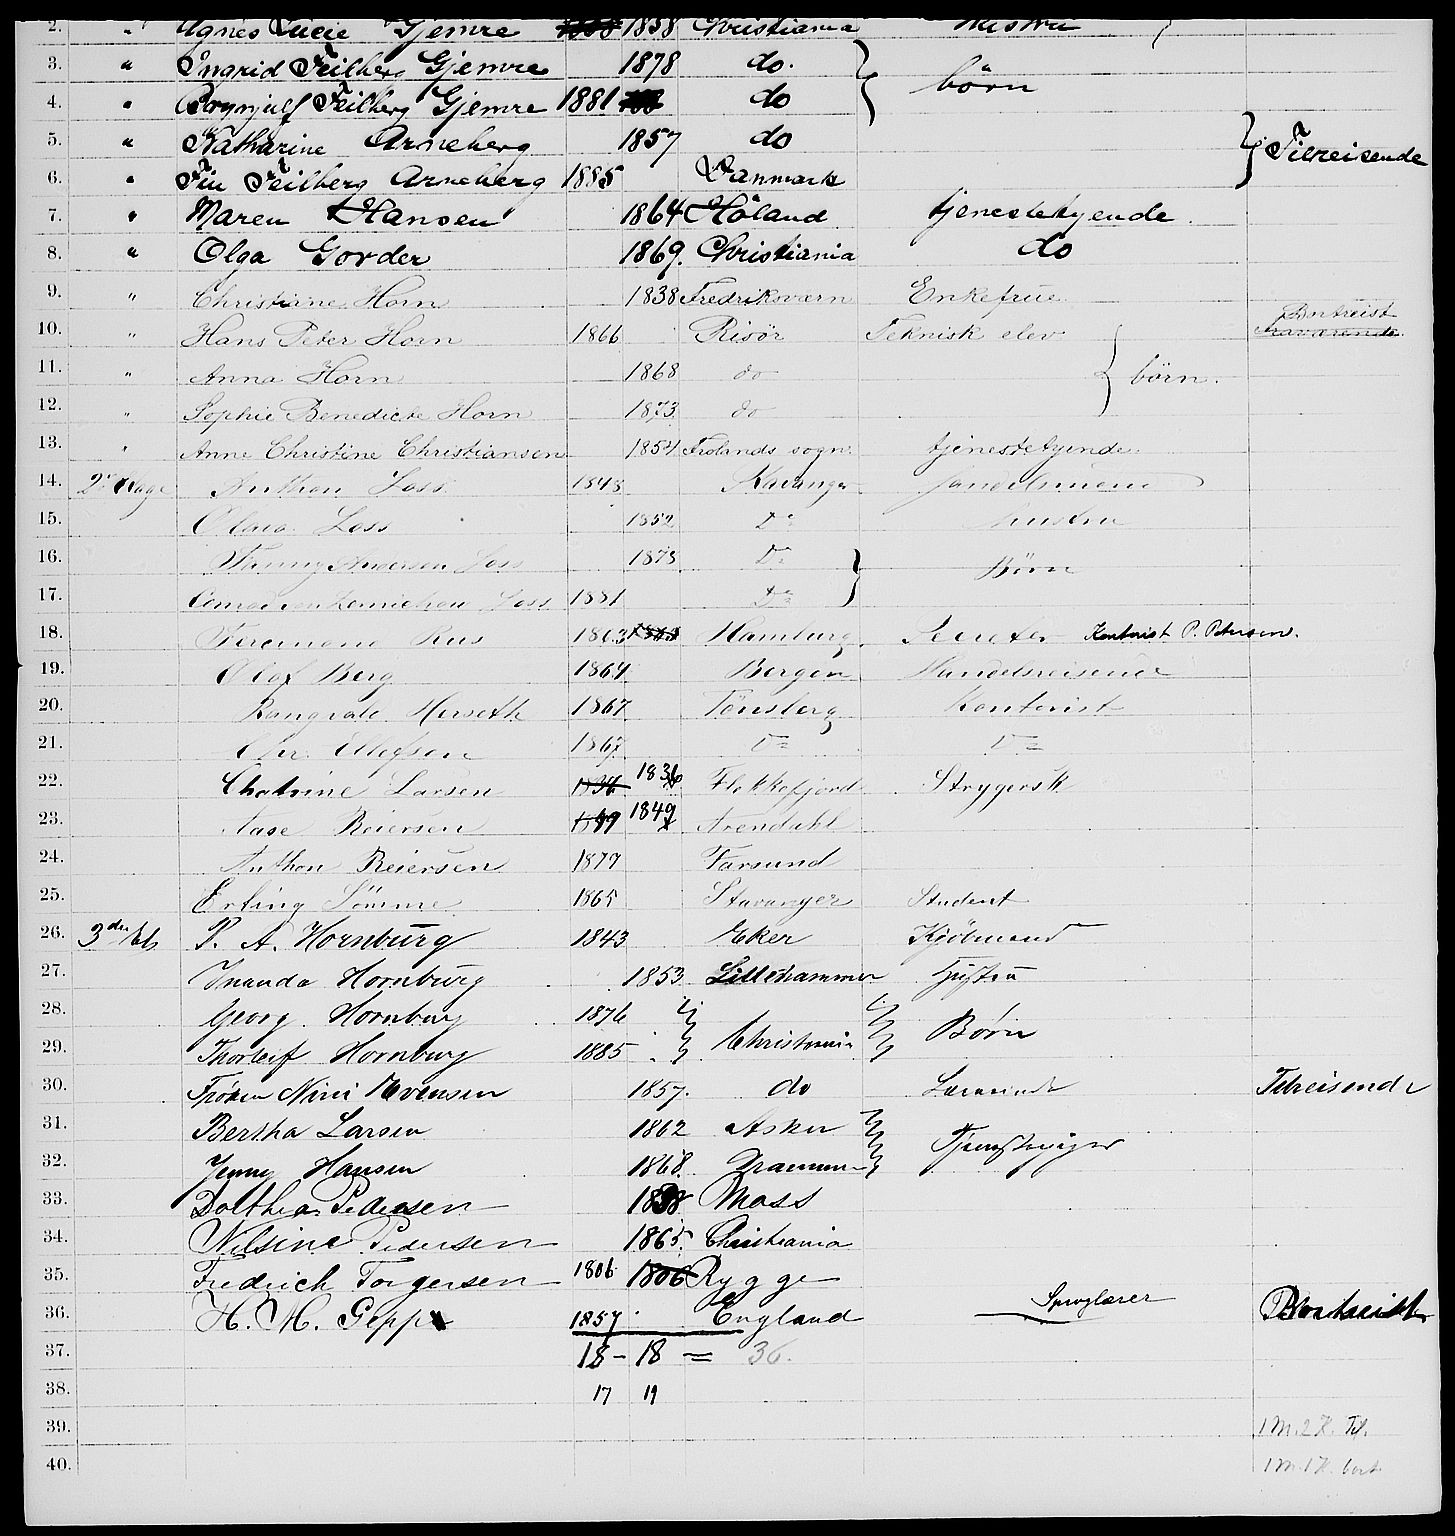 2. " Agnes Lucie Gjemre 1858 Christiania Hustru
3. " Ingrid Feilberg Gjemre 1878 do. } börn
4. " Brynjulf Feilberg Gjemre 1881 do
5. " Katharine Arneberg 1857 do } Tilreisende
6. " Fin Feilberg Arneberg 1885 Danmark
7. " Maren Hansen 1864 Höland tjenestetyende
8. " Olga Gorder 1869. Christiania do
9. " Christiane Horn 1838 Fredriksværn Enkefrue
10. " Hans Peter Horn 1866 Risör Teknisk elev Bortreist
11. " Anna Horn 1868 do } börn.
12. " Sophie Benedicte Horn 1873 do
13. " Anne Christine Christiansen 1854 Frolands sogn tjenestetyende
14. 2. Etage Anthon Loss 1843 Stavanger Handelsmand
15. Olava Loss 1852 Do Hustru
16. Fanny Andersen Loss 1873 Do } Börn
17. Loss 1881 Do
18. Ferdinand 1863 1863 Hamburg Kontorist P. Petersen.
19. Olaf Berg 1864 Bergen Handelsreisende
20. Rangvald Herseth 1867 Tönsberg Kontorist
21. Chr. Ellefsen 1867 Do Do
22. Chatrine Larsen 1836 1836 Flekkefjord Strygersk
23. Aase Reiersen 1849 1849 Arendahl
24. Anthon Reiersen 1877 Farsund
25. Erling Sömme 1865 Stavanger Student
26. 3die Etg P. A. Hornburg 1843 Eker Kjöbmand
27. Hornburg 1853 Lillehammer Hustru
28. Georg Hornburg 1876 Christiania Börn
29. Thorleif Hornburg 1885
30. Fröken Nini Evensen 1857. do Lærerinde Tilreisende
31. Bertha Larsen 1862 Asker
32. Jenny Hansen 1868. Drammen
33. Dolthea Pedersen Moss
34. Nilsine Pedersen 1865. Christiania
35. Fredrich Torgersen 1806 1806 Rygge
36. H. M. Gepp 1857 England Sproglærer Bortreist
37. 18 – 18 = 36.
38. 17 19
39. 1 M. 2 K. Til.
40. 1 M. 1 K. bort